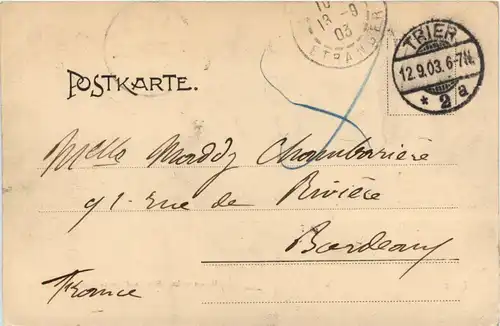 10
13-9
03
ETRANGER
TRIER
12.9.03.6-7N.
* 2 a
POSTKARTE.
Melle Maddy Chambarrière
91-rue de Rivière
Bordeaux
France